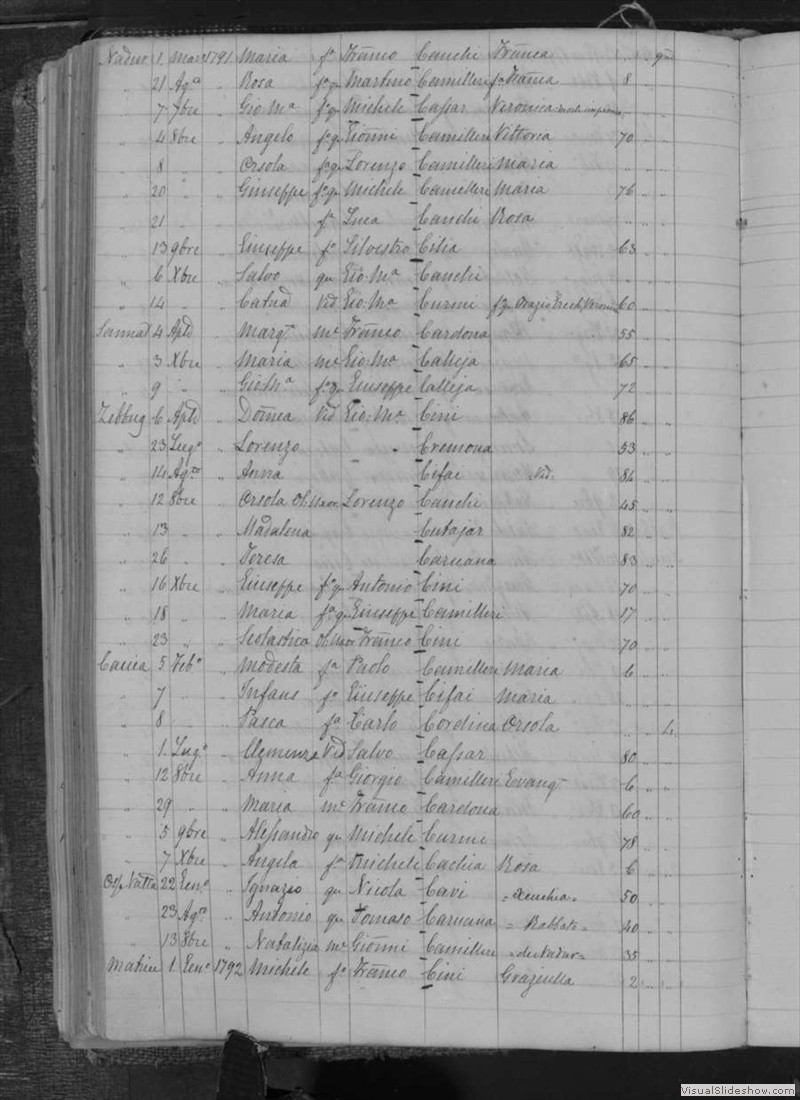 Nadur 1 Marz 1791 Maria fa Franco Cauchi Franca .. gni
" 21 Agto " Rosa fa qu Martino Camilleri fa Franca 8 .. "
" 7 7bre " Gio Ma fo qu Michele Caſsar Veronica
" 4 8bre " Angelo fo qu Gionni Camilleri Vittoria 70 .. "
" 8 " " Orsola fa qu Lorenzo Camilleri Maria .. .. "
" 20 " " Giuseppe fo qu Michele Camilleri Maria 76 .. "
" 21 " " fo Luca Cauchi Rosa .. .. "
" 13 9bre " Giuseppe fo Silvestro Cilia 63 .. "
" 6 Xbre " Salvo qu Gio Ma Cauchi .. .. "
" 14 " " Catnd Vid Gio Ma Curmi fa qu Orazio 60 .. "
Sannat 4 Aple " Margta me Franco Cardona 55 .. "
" 3 Xbre " Maria me Gio Ma Calleja 65 .. "
" 9 " " Gio Ma fo qu Giuseppe Calleja 72 .. "
Zebbug 6 Aple " Domca Vid Gio Ma Cini 86 .. "
" 23 Lugo " Lorenzo Cremona 53 .. "
" 14 Agto " Anna Cifai Vid. 84 .. "
" 12 8bre " Orsola Ol. Uxor Lorenzo Cauchi 45 .. "
" 13 " " Madalena Cutajar 82 .. "
" 26 " " Teresa Caruana 83 .. "
" 16 Xbre " Giuseppe fo qu Antonio Cini 70 .. "
" 18 " " Maria fa qu Giuseppe Camilleri 17 .. "
" 23 " " Scolastica Ol. Uxor Franco Cini 70 .. "
Caccia 5 Febo " Modesta fa Paolo Camilleri Maria 6 .. "
" 7 " " Infans fo Giuseppe Cifai Maria .. .. "
" 8 " " Pasca fa Carlo Cordina Orsola .. .. 4
" 1 Lugo " Clemenza Vid Salvo Caſsar 80 .. "
" 12 8bre " Anna fa Giorgio Camilleri Evangta 6 .. "
" 29 " " Maria me Franco Cardona 60 .. "
" 5 9bre " Aleſsandro qu Michele Curmi 78 .. "
" 7 Xbre " Angela fa Michele Cachia Rosa 6 .. "
22 Geno " Ignazio qu Nicola Cavi = Xeuchia = 50 .. "
" 23 Agto " Antonio qu Tomaso Caruana = Rabbato = 40 .. "
" 13 8bre " Natalizia me Gionni Camilleri = du Nadur = 35 .. "
Matrice 1 Geno 1792 Michele fo Franco Cini Graziulla 2 .. "
VisualSlideshow.com